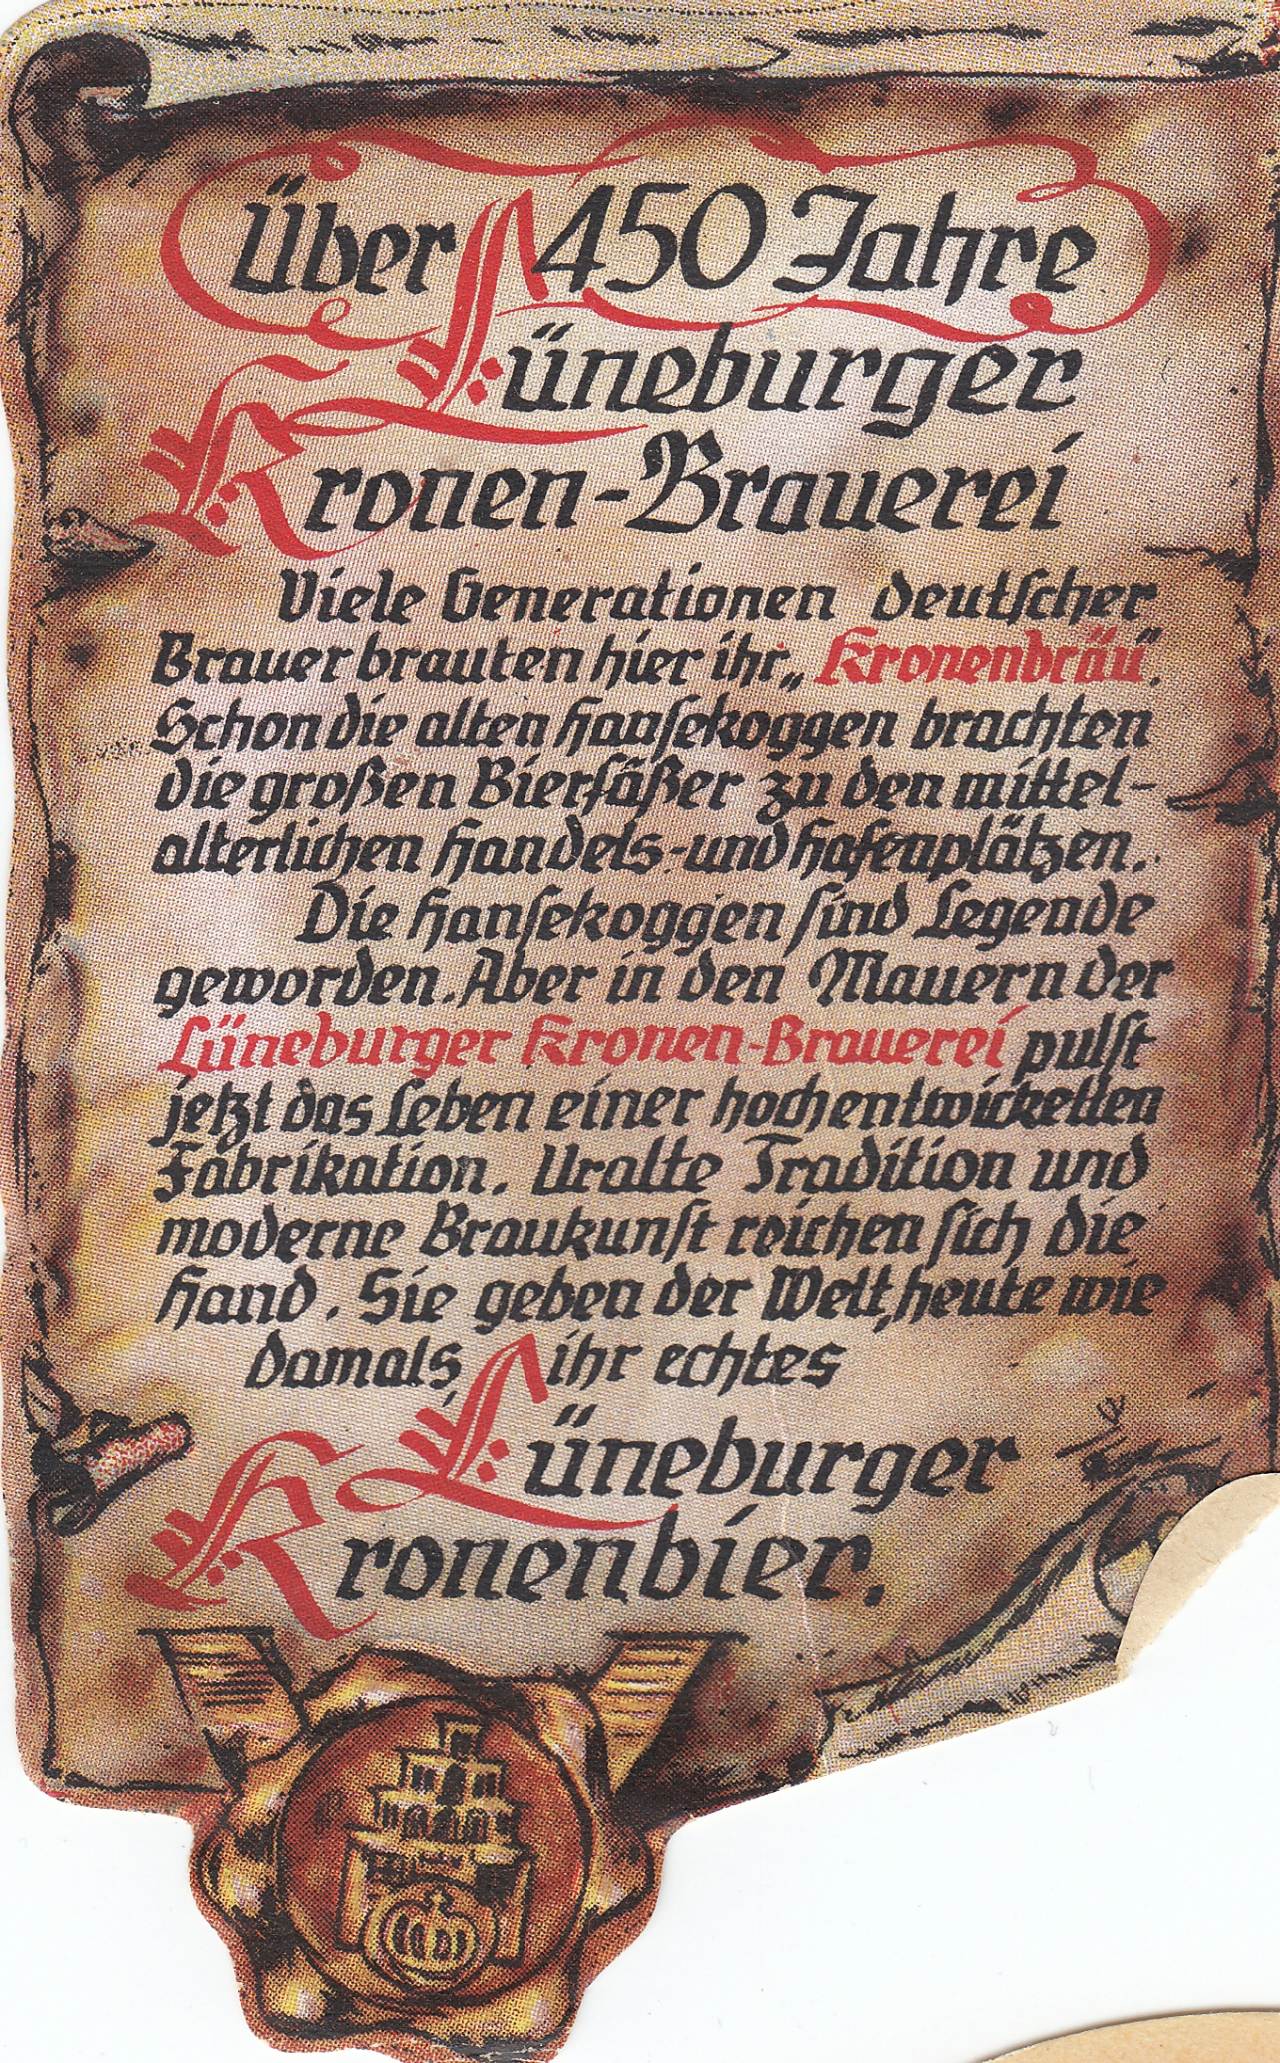 Über 450 Jahre
Lüneburger
Kronen-Brauerei
Viele Generationen deutscher
Brauer brauten hier ihr „Kronenbräu“.
Schon die alten Hansekoggen brachten
die großen Bierfäßer zu den mittel-
alterlichen Handels- und Hafenplätzen.
Die Hansekoggen sind Legende
geworden. Aber in den Mauern der
Lüneburger Kronen-Brauerei pulst
jetzt das Leben einer hochentwickelten
Fabrikation. Uralte Tradition und
moderne Braukunst reichen sich die
Hand. Sie geben der Welt, heute wie
damals, ihr echtes
Lüneburger
Kronenbier.